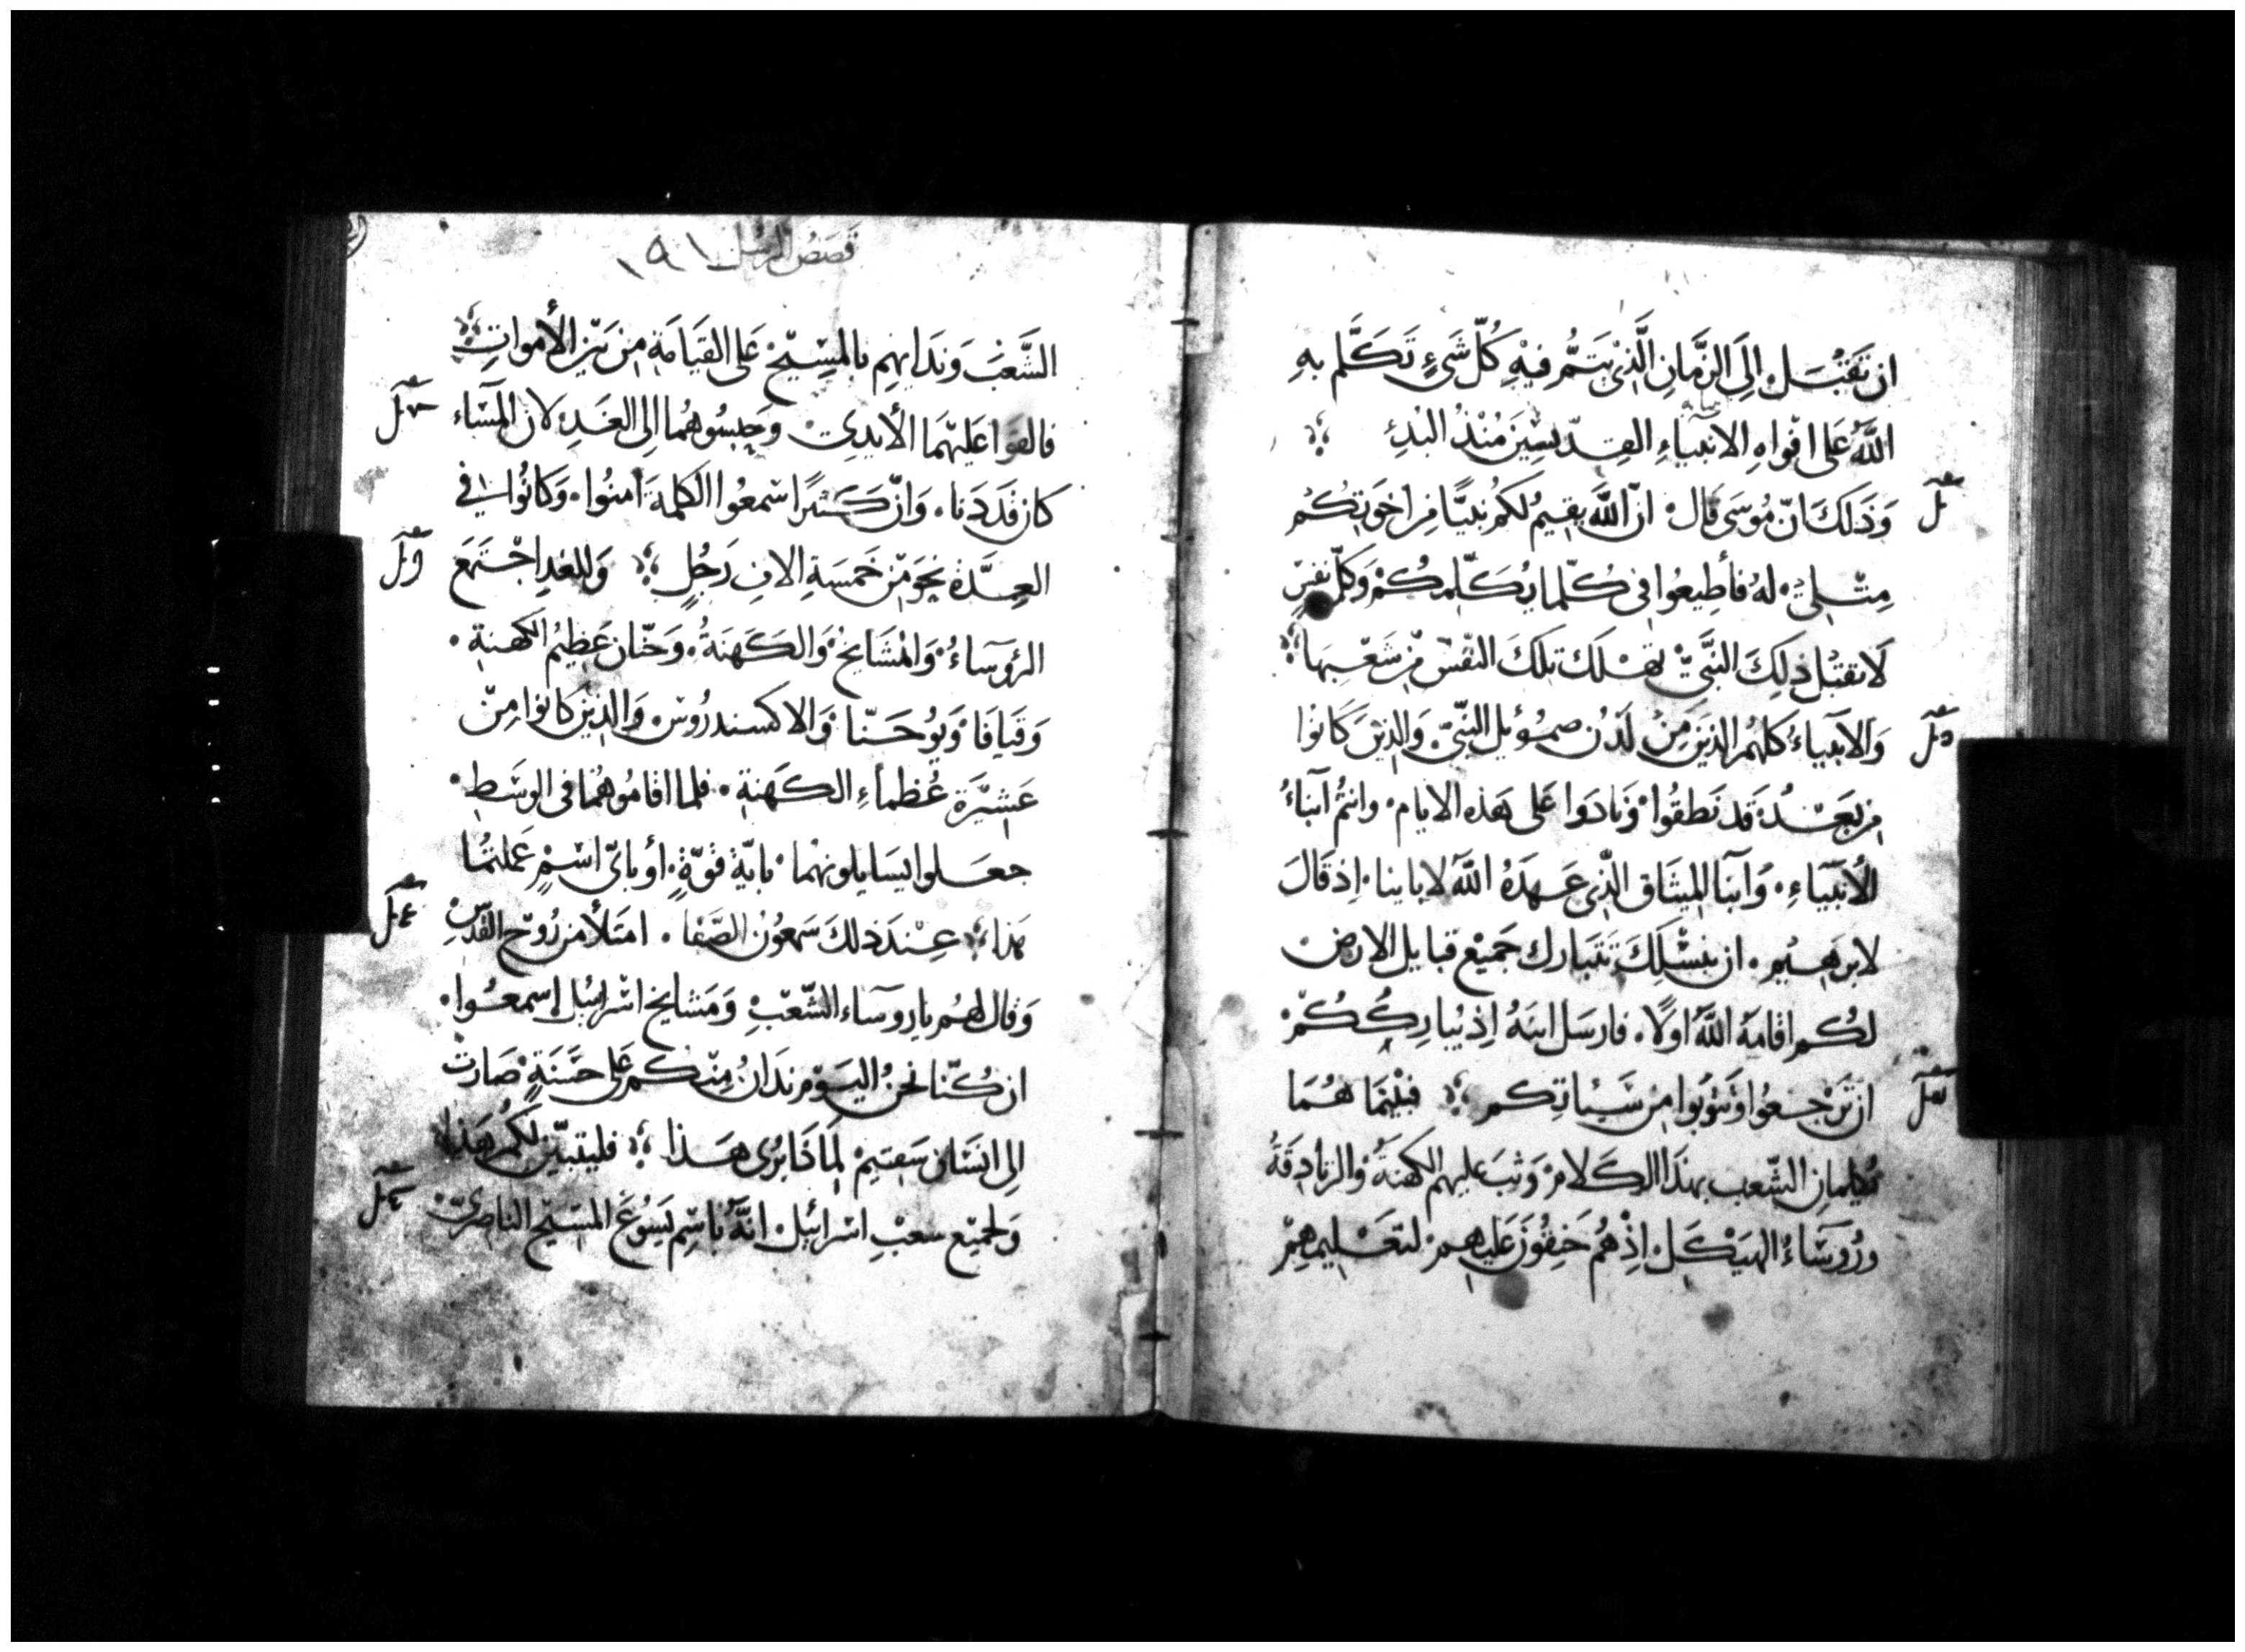 ان تَقبَل الَى الزَّمانِ الَّذى يَتمُّ فيْهِ كُلّ شَىءٍ تَكَلَّم بهِ
اللّهُ عَلى افْواهِ الانبياءِ القِدّيسِينَ مُنْذُ البُدءِ
وَذَلكَ انّ مُوسَى قال انّ اللَّهَ يقيمُ لكمُ نبيًّا مِن اخوَتِكُم
مثْلى لهُ فأطِيعُوا فى كُلّما يُكَلّمكُمْ وَكلّ نفسٍ
لاتقبْل ذلِكَ النبَّىّ تهلَك تلكَ النفْسْ مِن شَعْبِهَا
وَالآنبياءُ كلهمُ الذينَ مِنْ لَدُن صموئيل النبّى وَالذينَ كَانوُا
من بَعْدهُ قد نَطقُوا وَنادَوا عَلى هَذه الايام وانتمُ آبناءُ
الأنبيَاءِ وَآبنَا الميثَاق الذّى عَهِدَهُ اللَّهَ لاباينا اِذ قَالَ
لابرَهيْمِ ان بنسْلِكَ تَتَبارك جَميْع قبايل الارض
لكُم اقامَهُ اللَّهُ اولًا فارسَل ابنَهُ اِذ يُبارِكُكُمْ
ان تَرْجعُوا وَتتوبُوا مِن سَيئاتِكم فبَيْنَمَا هُمَا
يكلمانِ الشّعب بهذَا الكَلامْ وَثبَ عليهم الكهنَةُ وَالزنادِقَةُ
ورُوسَاءُ الهَيْكَل اِذْ هُمْ حَنِقُونَ عَليهِمْ لتعْليمهِمْ
قصَصُ الرسُل ١٩١
الشَّعْبَ وَندَايهِم بالمسِيْحْ عَلى القيَامَةِ مِن بَيْن الأمواتِ
فالقوا عَليهمَا الأيدِى وَحبسُوهُمَا الى الغَدِ لان المَسَاء
كان قَد دَنا وَانّ كَثيرًا سْمعُوا الكلِمَةَ آمنُوا وَكانوُا فى
العِدَّة نحَو مْن خَمسَةِ الافِ رَجُلٍ وَللغدِ اجْتمَعَ
الرؤسَاءُ وَالمْشَايخُ وَالكَهَنَةُ وَحَنّان عَظِيمُ الكَهنةِ
وَقيَافَا وَيوُحَنّا وَالاكسندرُوسْ وَالذينَ كَانوا مِنْ
عَشيْرَة عُظماءِ الكَهنةِ فلما اقامُوهُمَا فى الوسَطِ
جعَلوا يسَايلونهْما بايّةِ قوّةٍ أو بآىّ اسْمٍ عَملتمُا
هَذا عِنْدَ ذلكَ سَمعُونُ الصَّفا امتَلأ من رُوْح القُدسِ
وَقال لهُم يارروسَاء الشّعْبِ وَمَشايخ اسْرائيل اسمعُوا
ان كُنّا نحنُ اليَوْم نُدَانُ مِنْكم عَلى حَسَنةٍ صَارَتْ
الى انسَان سَقيمْ لمَاذَا بَرى هَذا فليتبيّن لكُم هَذا
وَلجميْع شعْبِ اسْرائيل انّهُ باسْم يَسُوعَ المسَيْح الناصِرىّ